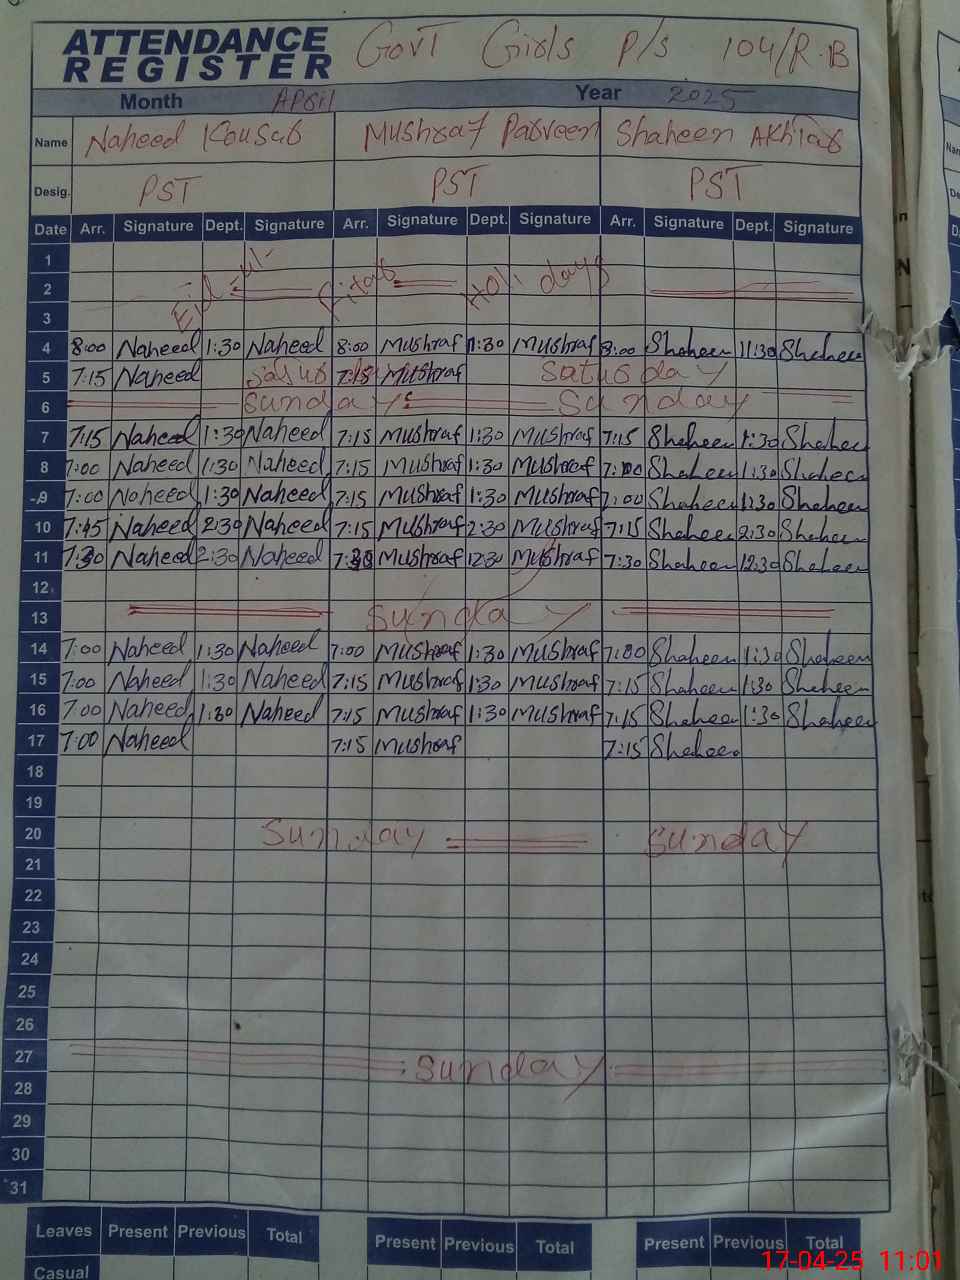 ATTENDANCE REGISTER Govt Girls P/s 104/R.B
Month April Year 2025
Name Naheed Kousar Mushraf Parveen Shaheen Akhtar
Desig. PST PST PST
Date Arr. Signature Dept. Signature Arr. Signature Dept. Signature Arr. Signature Dept. Signature
1
2 Eid-ul- Fitar Holi days
3
4 8:00 Naheed 1:30 Naheed 8:00 Mushraf 11:30 Mushraf 8:00 Shaheen 11:30 Shaheen
5 7:15 Naheed 7:15 Mushraf Satur day
6 Sunday Sunday
7 7:15 Naheed 1:30 Naheed 7:15 Mushraf 1:30 Mushraf 7:15 Shaheen 1:30 Shaheen
8 7:00 Naheed 1:30 Naheed 7:15 Mushraf 1:30 Mushraf 7:00 Shaheen 1:30 Shaheen
9 7:00 Naheed 1:30 Naheed 7:15 Mushraf 1:30 Mushraf 7:00 Shaheen 1:30 Shaheen
10 7:45 Naheed 2:30 Naheed 7:15 Mushraf 2:30 Mushraf 7:15 Shaheen 2:30 Shaheen
11 7:30 Naheed 2:30 Naheed 7:30 Mushraf 12:30 Mushraf 7:30 Shaheen 12:30 Shaheen
12
13 Sunday
14 7:00 Naheed 1:30 Naheed 7:00 Mushraf 1:30 Mushraf 7:00 Shaheen 1:30 Shaheen
15 7:00 Naheed 1:30 Naheed 7:15 Mushraf 1:30 Mushraf 7:15 Shaheen 1:30 Shaheen
16 7:00 Naheed 1:30 Naheed 7:15 Mushraf 1:30 Mushraf 7:15 Shaheen 1:30 Shaheen
17 7:00 Naheed 7:15 Mushraf 7:15 Shaheen
18
19
20 Sunday Sunday
21
22
23
24
25
26
27 Sunday
28
29
30
31
Leaves Present Previous Total Present Previous Total Present Previous Total
Casual
17-04-25 11:01